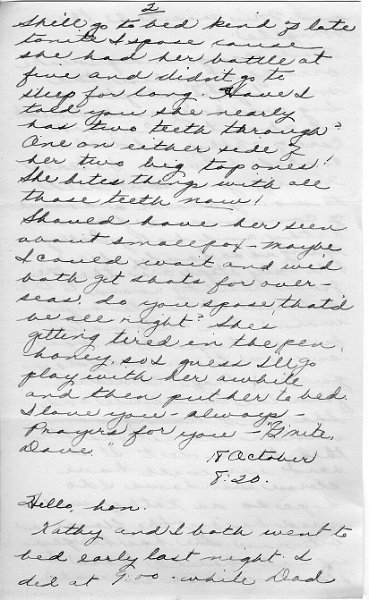 2
She'll go to bed kind of late
tonite I spose cause
she had her bottle at
five and didn't go to
sleep for long. Have I
told you she nearly
has two teeth through?
One on either side of
her two big top ones!
She bites things with all
those teeth now!
Should have her seen
about smallpox - maybe
I could wait and we'd
both get shots for over-
seas, do you spose that'd
be all right? She's
getting tired in the pen,
honey, so I guess I'll go
play with her awhile
and then put her to bed.
I love you - always -
Prayers for you - "G'nite,
Dave"
18 October
8:20.
Hello, hon.
Kathy and I both went to
bed early last night. I
did at 9:00 - while Dad